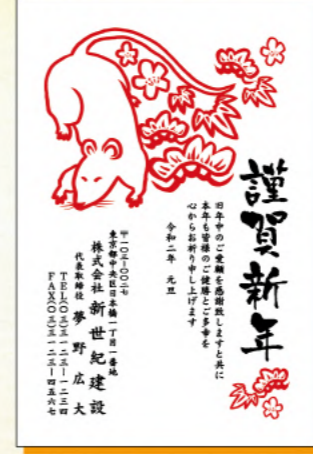 謹賀新年
旧年中のご愛顧を感謝致しますと共に
本年も皆様のご健勝とご多幸を
心からお祈り申し上げます
令和二年 元旦
〒一〇三-〇〇二七
東京都中央区日本橋一丁目一番地
株式会社 新世紀建設
代表取締役 夢野広大
TEL(〇三)一二三-一二三四
FAX(〇三)一二三-四五六七